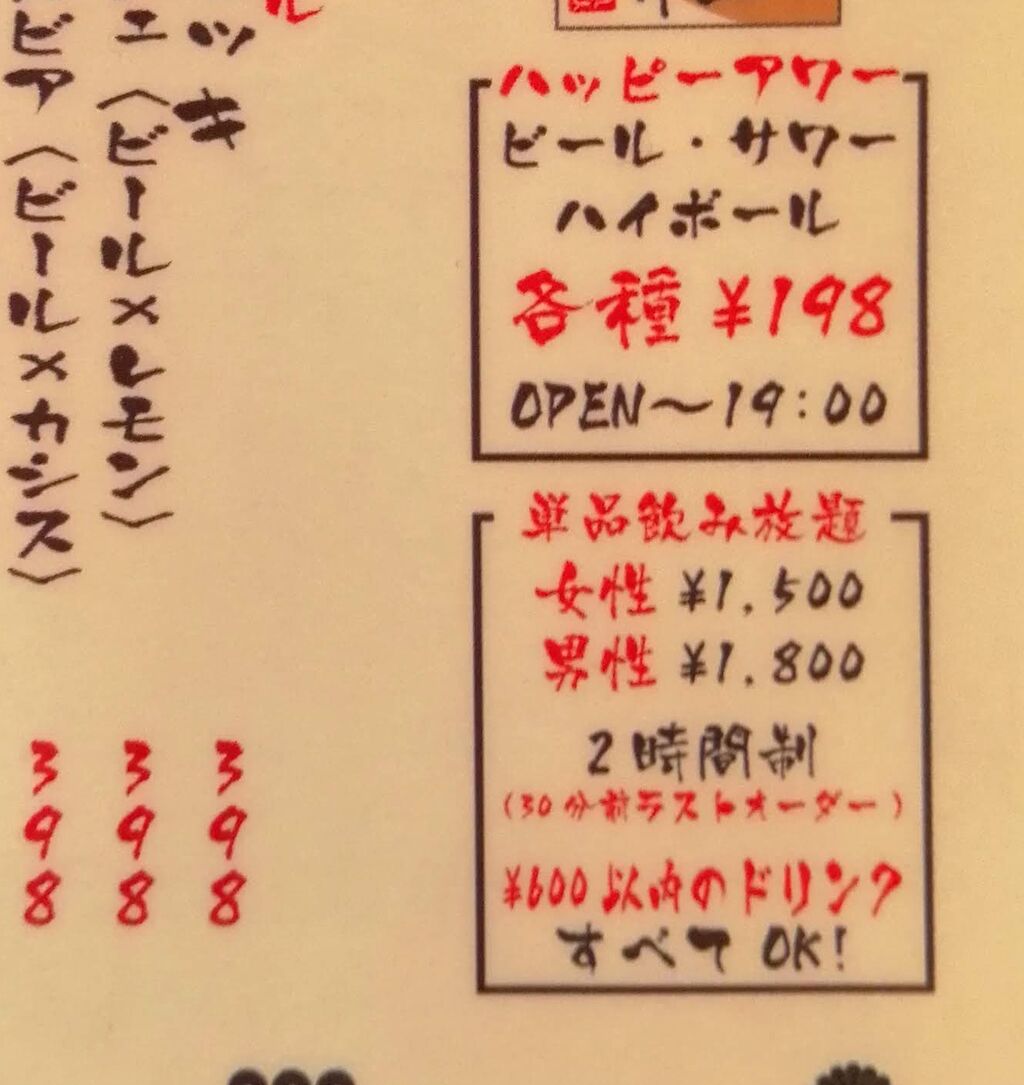 ハッピーアワー
ビール・サワー
ハイボール
各種 ¥198
OPEN～19:00
単品飲み放題
女性 ¥1,500
男性 ¥1,800
2時間制
(30分前ラストオーダー)
¥600以内のドリンク
すべてOK!
ッキ
398
ェ〈ビール×レモン〉
398
ビア〈ビール×カシス〉
398